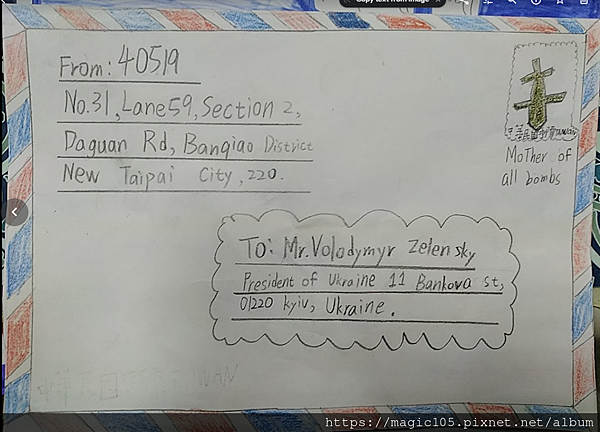 Copy text from image
From: 40519
No.31, Lane59, Section 2,
Daguan Rd, Banqiao District
New Taipai City, 220.
中華民國郵票 Taiwan
Mother of
all bombs
To: Mr. Volodymyr Zelensky
President of Ukraine 11 Bankova st,
01220 kyiv, Ukraine.
https://magic105.pixnet.net/album